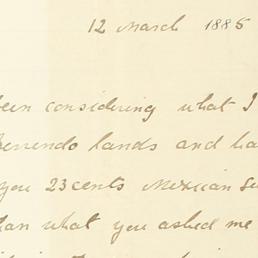 12 March 1885
been considering what I
Berrendo lands and ha
you 23 cents Mexican
than what you asked me